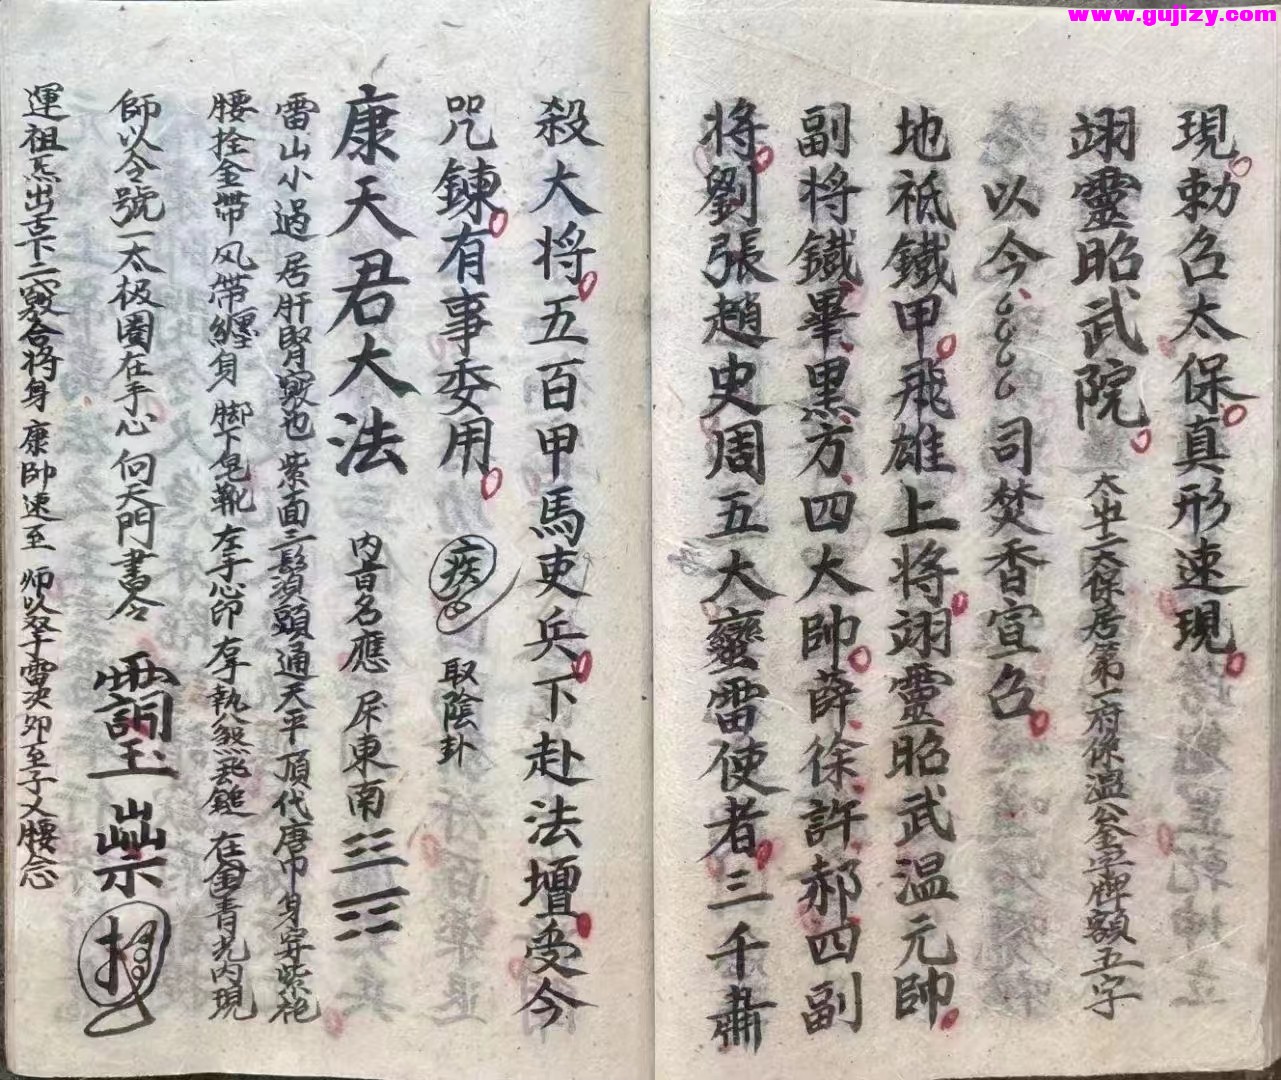 www.gujizy.com
現勅召太保真形速現
翊靈昭武院 太歲十二太保居第一府保溫公金字牌額五字
以今司焚香宣召
地祗鐵甲飛雄上将翊靈昭武温元帥
副将鐵畢黑方四大帥薛徐許郝四副
将劉張趙史周五大蠻雷使者三千
殺大将五百甲馬吏兵下赴法壇受今
咒鍊有事委用 疾 取陰卦
康天君大法 内音名應 屎東南
雷山小過 居肝腎竅也 紫面三鬚 須頭通天平頂代唐巾身穿紫袍
腰拴金帶风带纏身 脚下皂靴 左手心印 右手執八煞飛鎚 在青光内現
師以令號一太极圈在手心 向天門書令
運祖炁出舌下二竅合将身 康帥速至 师以拏雷炎卯至子乂腰念